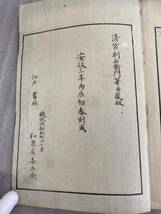 清宮利右衛門著并蔵板
安政三年丙辰仲春刻成
江戸書林
和泉屋善兵衛